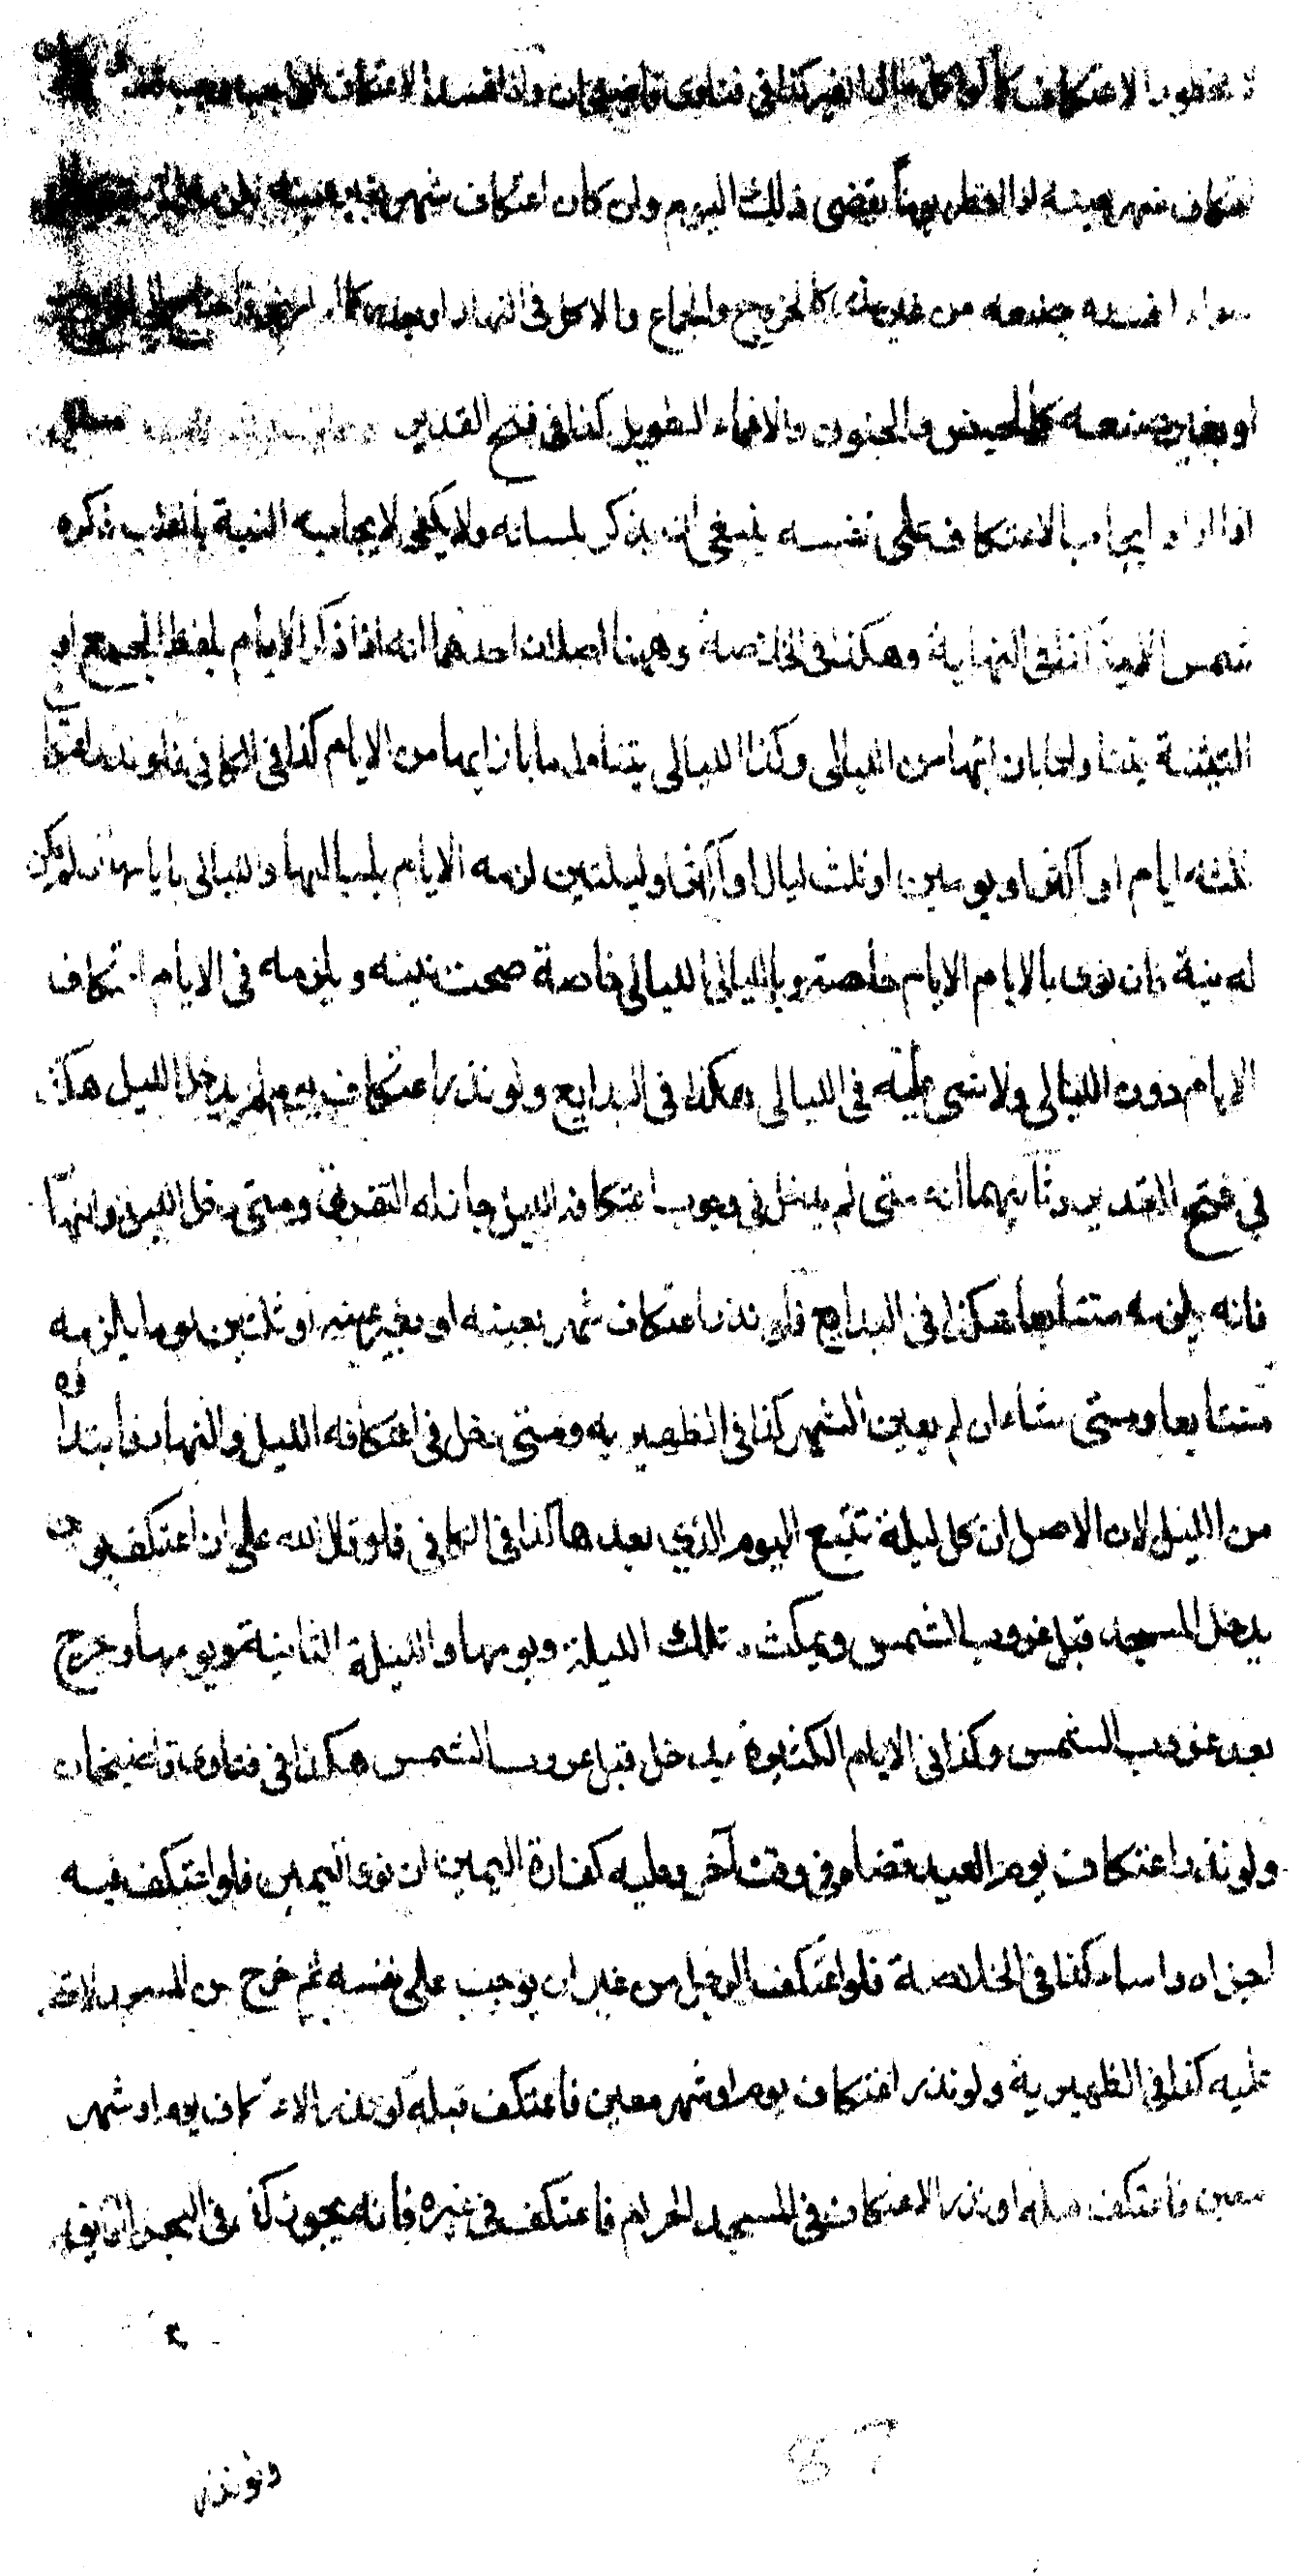 لا محظور الاعتكاف كما لو اكل مال الغير كذا في فتاوى قاضيخان واذا فسد الاعتكاف الواجب وجب
اعتكاف شهر بعينه اذا افطر يوماً يقضي ذلك اليوم وان كان اعتكاف شهر بغير عينه
سواء افسده بصنعه من غير عذر كالخروج والجماع والاكل في النهار او بعذر كما
او بغير صنعه كالحيض والجنون والاغماء الطويل كذا في فتح القدير
اذا اراد ايجاب الاعتكاف على نفسه ينبغي ان يذكر بلسانه ولا يكفي لايجابه النية بالقلب ذكره
شمس الائمة كذا في النهاية وهكذا في الخلاصة وههنا اصلان احدهما انه اذا ذكر الايام بلفظ الجمع او
التثنية يتناول ما بازائها من الليالي وكذا الليالي يتناول ما بازائها من الايام كذا في الكافي فلو نذر اعتكاف
ثلثة ايام او اكثر او يومين او ثلث ليال او اكثر او ليلتين لزمه الايام بلياليها والليالي بايامها ان لم يكن
له نية فان نوى بالايام الايام خاصة وبالليالي الليالي خاصة صحت نيته ويلزمه في الايام اعتكاف
الايام دون الليالي ولا شي عليه في الليالي هكذا في البدايع ولو نذر اعتكاف يوم لم يدخل الليل هكذا
في فتح القدير وثانيهما انه متى لم يدخل في وجوب اعتكافه الليل جاز له التفريق ومتى دخل الليل والنهار
فانه يلزمه متتابعا هكذا في البدايع فلو نذر اعتكاف شهر بعينه او بغير عينه او ثلثين يوما يلزمه
متتابعا ومتى شاء ان لم يعين الشهر كذا في الظهيرية ومتى دخل في اعتكافه الليل والنهار فابتداؤه
من الليل لان الاصل ان كل ليلة تتبع اليوم الذي بعدها كذا في الكافي فلو قال لله علي ان اعتكف يومين
يدخل المسجد قبل غروب الشمس ويمكث تلك الليلة ويومها والليلة الثانية ويومها وخرج
بعد غروب الشمس وكذا في الايام الكثيرة يدخل قبل غروب الشمس هكذا في فتاوى قاضيخان
ولو نذر اعتكاف يوم العيد قضاه في وقت آخر وعليه كفارة اليمين ان نوى اليمين فلو اعتكف فيه
اجزاه واساء كذا في الخلاصة فلو اعتكف الرجل من غير ان يوجب على نفسه ثم خرج من المسجد لا شي
عليه كذا في الظهيرية ولو نذر اعتكاف يوم او شهر معين فاعتكف قبله او نذر الاعتكاف يوم او شهر
معين فاعتكف قبله او نذر الاعتكاف في المسجد الحرام فاعتكف في غيره فانه يجوز كذا في البحر الرايق
87
ولو نذر